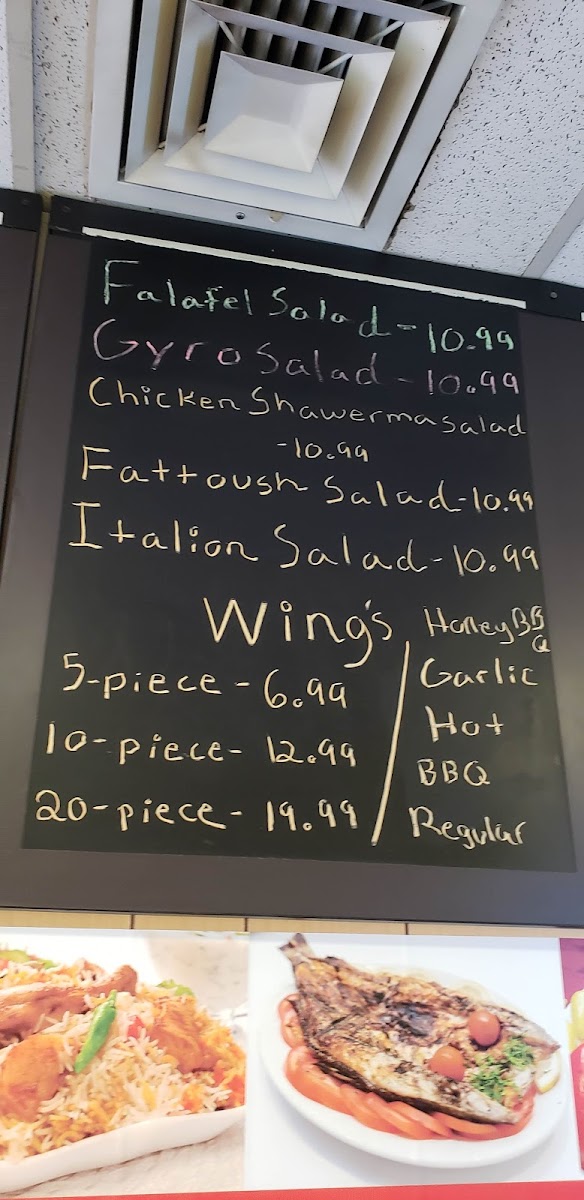 Falafel Salad - 10.99
Gyro Salad - 10.99
Chicken Shawerma salad
- 10.99
Fattoush Salad - 10.99
Italion Salad - 10.99
Wing's
5-piece - 6.99
10-piece - 12.99
20-piece - 19.99
Honey BBQ
Garlic
Hot
BBQ
Regular